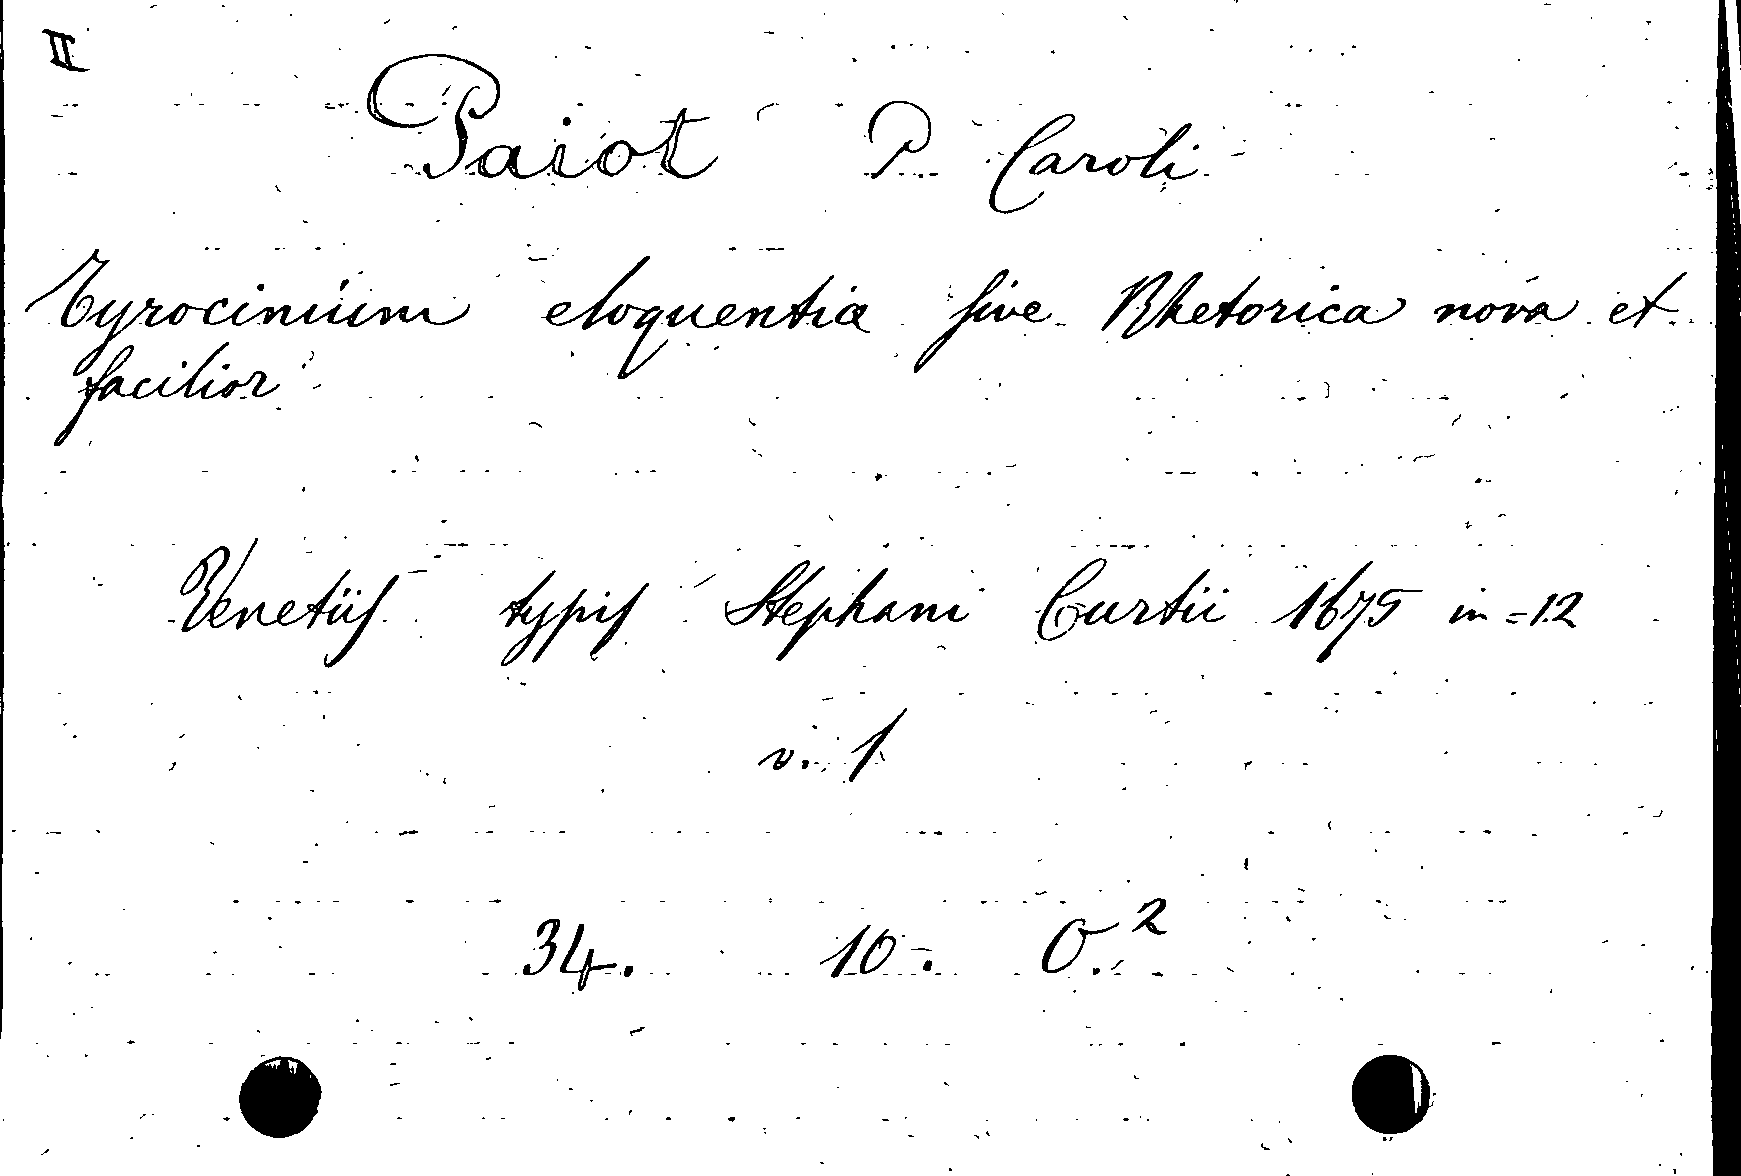 II
Paiot P. Caroli
Tyrocinium eloquentiæ sive Rhetorica nova et
facilior
Venetiis typis Stephani Curtii 1675 in=12
v. 1
34. 10-. O.²